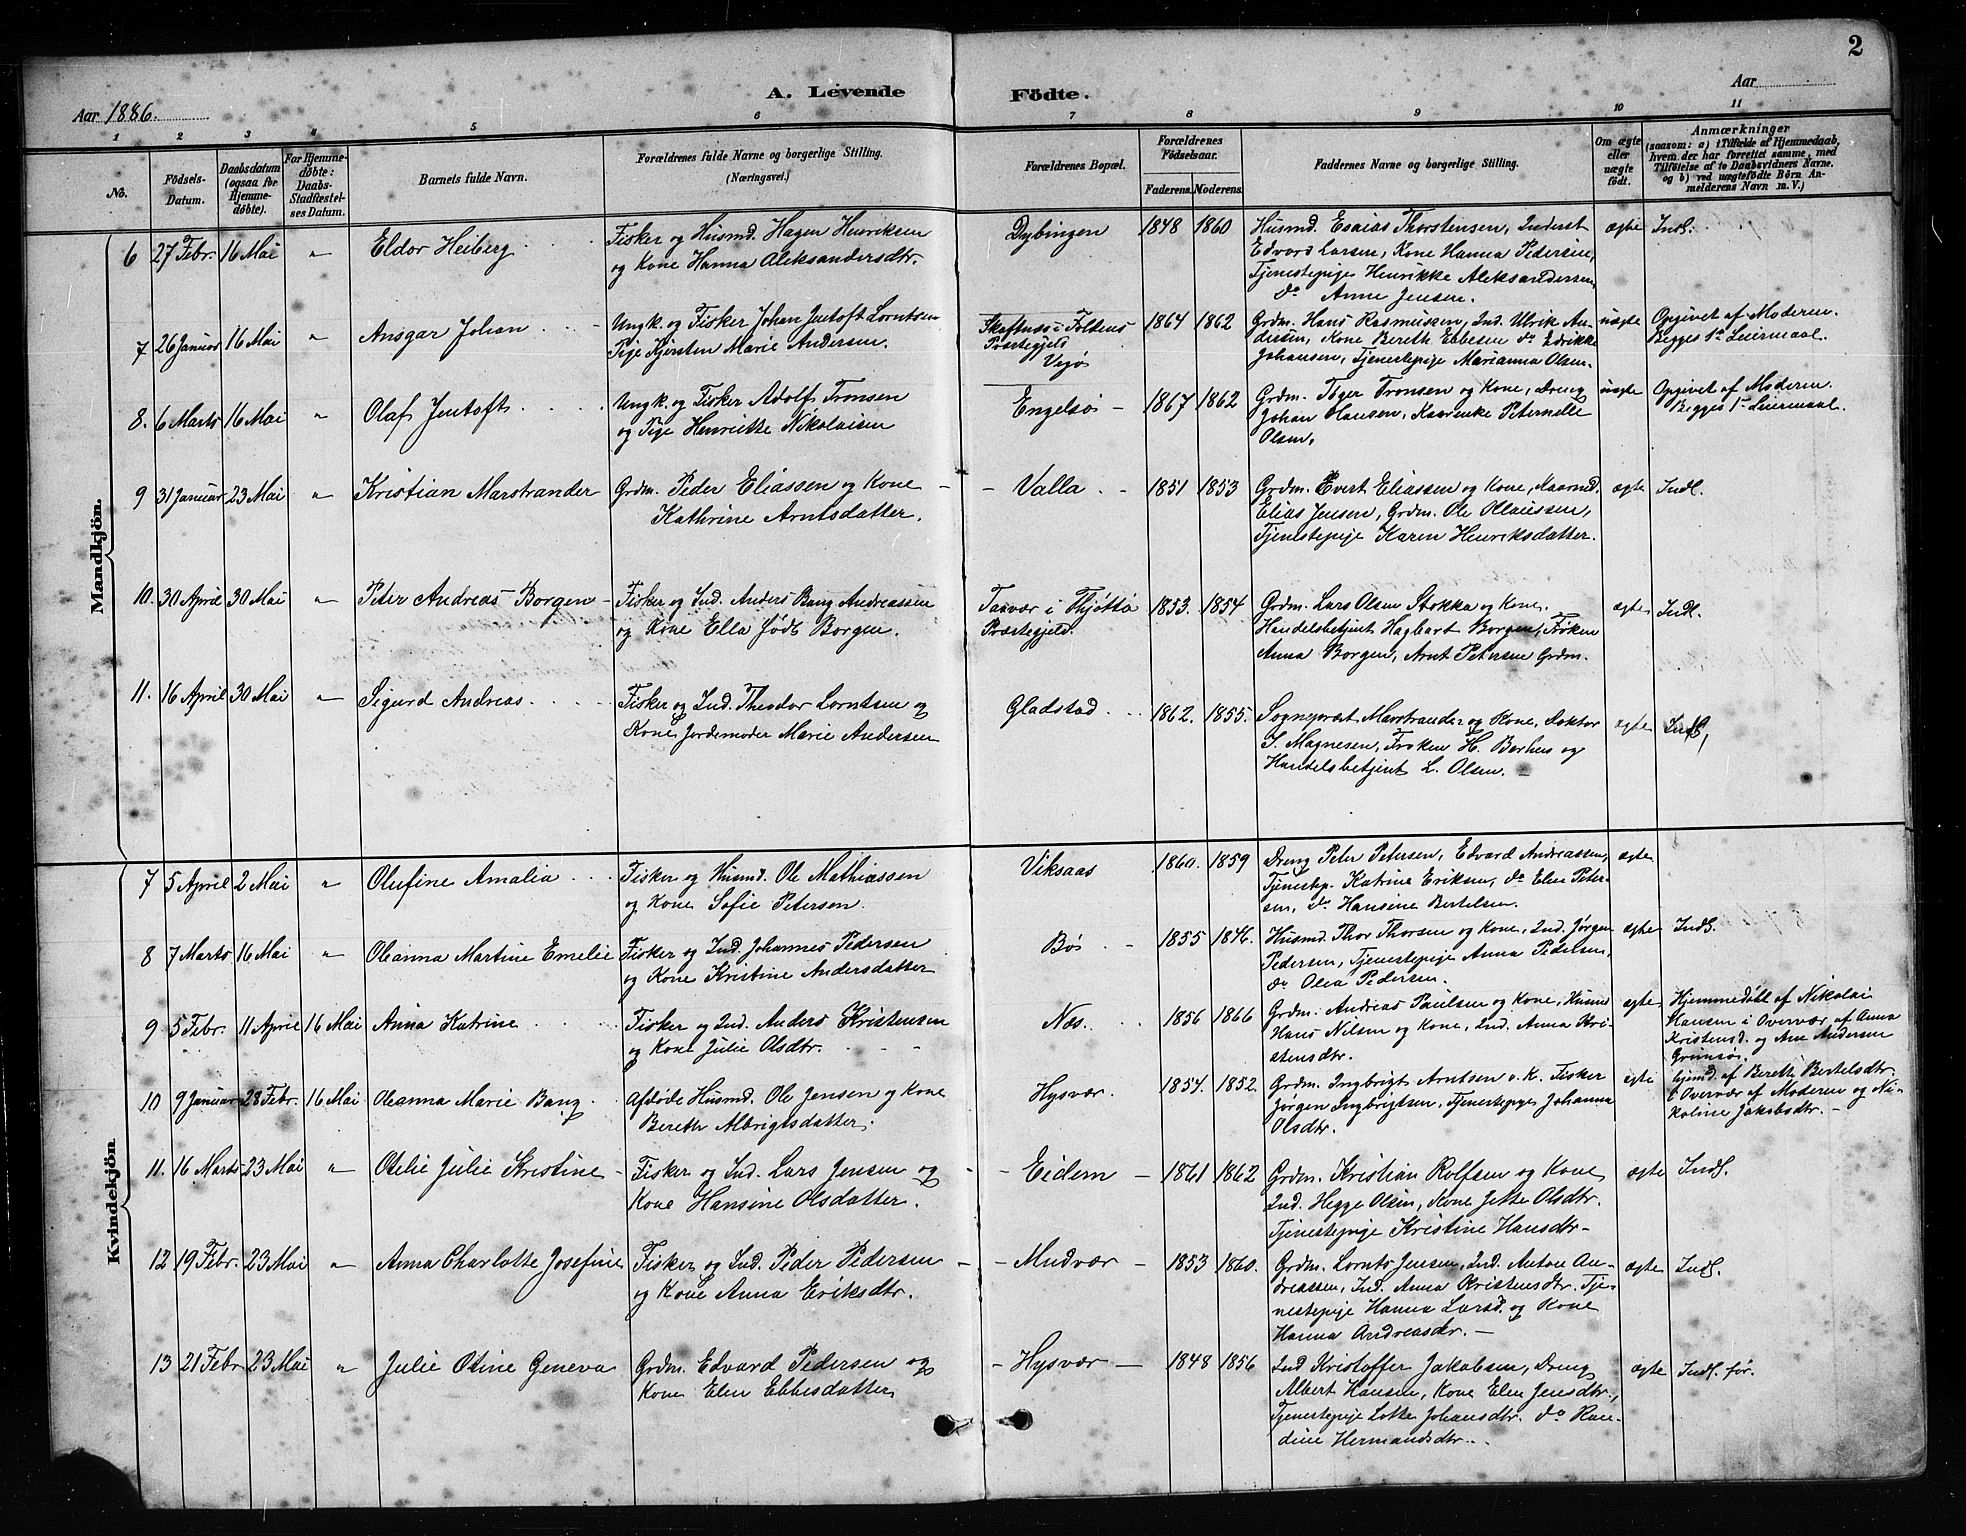 2
Aar 1886.
A. Levende Födte.
Aar
1 2 3 4 5 6 7 8 9 10 11
No.
Födsels-Datum.
Daabsdatum (ogsaa for Hjemme-döbte).
For Hjemme-döbte: Daabs-Stadfæstel-ses Datum.
Barnets fulde Navn.
Forældrenes fulde Navne og borgerlige Stilling. (Næringsvei.)
Forældrenes Bopæl.
Forældrenes Födselsaar.
Faderens. Moderens.
Faddernes Navne og borgerlige Stilling.
Om ægte eller uægte födt.
Anmærkninger
(saasom: a) i Tilfælde af Hjemmedaab, hvem der har forrettet samme, med Tilföielse af to Daabsvidners Navne. og b) ved uægtefödte Börn An-melderens Navn m. V.)
Mandkjön.
6 27 Febr. 16 Mai " Eldor Heiberg. Fisker og Husmd. Hagen Henriksen
og Kone Hanna Aleksandersdtr.
Dybingen 1848 1860 Husmd. Esaias Thorstensen, Inderst
Edvard Larsen, Kone Hanna Pedersen,
Tjenestepige Henrikke Aleksandersen
do Anne Jensen.
ægte Indl.
7 26 Januar 16 Mai " Ansgar Johan Ungk. og Fisker Johan Jentoft Lorntsen
Pige Kjersten Marie Andersen.
Præstegjeld
Vejø
1864 1862 Grdm. Hans Rasmussen, Ind. Ulrik An-
dersen, Kone Bereth Ebbesen do Edrikke
Johansen, Tjenestepige Marianna Olsen.
uægte Opgivet af Moderen.
Begges 1ste Leiermaal.
8. 6 Marts 16 Mai " Olaf Jentoft Ungk. og Fisker Adolf Tronsen
og Pige Henriette Nikolaisen
Engelsø 1867 1862 Grdm. Toger Tronsen og Kone, Dreng
Johan Hansen, Kaarenke Peternelle
Olsen,
uægte Opgivet af Moderen.
Begges 1ste Leiermaal.
9 31 Januar 23 Mai " Kristian Marstrander Grdm. Peder Eliassen og Kone
Kathrine Arntsdatter.
Valla 1851 1853 Grdm. Evert Eliassen og Kone, Kaarmd.
Elias Jensen, Grdm. Ole Olaussen,
Tjenestepige Karen Henriksdatter.
ægte Indl.
10. 30 April 30 Mai " Peter Andreas Borgen Fisker og Ind. Anders Bang Andreassen
og Kone Ella født Borgen.
Tasvær i Thjøttø
Præstegjeld.
1853. 1854 Grdm. Lars Olsen Stokka og Kone.
Handelsbetjent Hagbart Borgen, Frøken
Anna Borgen, Arnt Petersen Grdm.
ægte Indl.
11. 16 April 30 Mai " Sigurd Andreas Fisker og Ind. Theodor Lorntsen og
Kone Jordemoder Marie Andersen
Gladstad 1862. 1855. Sognepræst Marstrander og Kone, Doktor
S. Magnesen, Frøken H. Berhus og
Handelsbetjent L. Olsen.
ægte Indl,
Kvindekjön.
7 5 April 2 Mai " Olufine Amalia Fisker og Husmd. Ole Mathiassen
og Kone Sofie Petersen.
Viksaas 1860. 1859 Dreng Peter Petersen, Edvard Andreassen,
Tjenestep. Katrine Eriksen, do Elen Peter-
sen, do Hansine Bertelsen.
ægte
8 7 Marts 16 Mai " Oleanna Martine Emelie Fisker og Ind. Johannes Pedersen
og Kone Kristine Andersdatter
Bø 1855 1846. Husmd. Thor Thorsen og Kone, Ind. Jørgen
Pedersen, Tjenestepige Anna Pedersen,
do Olea Pedersen.
ægte Indl.
9 5 Febr. 11 April 16 Mai Anna Katrine Fisker og Ind. Anders Kristensen
og Kone Julie Olsdtr.
Nøs. 1856 1866 Grdm. Andreas Paulsen og Kone, Husmd
Hans Nilsen og Kone, Ind. Anna Kri-
stensdtr.
ægte Hjemmedøbt af Nikolai
Hansen i Overvær af Anna
Kristensd. og Ane Andersen
Grimsø.
10 9 Januar 28 Febr. 16 Mai Oleanna Marie Bang. Afdøde Husmd. Ole Jensen og Kone
Bereth Albrigtsdatter.
Hysvær. 1854. 1852. Grdm. Ingbrigt Arntsen o. K. Fisker
Jørgen Ingbrigtsen, Tjenestepige Johanna
Olsdtr.
ægte hjemd. af Bereth Bertelsdtr.
i Overvær af Moderen og Ni-
koline Jakobsdtr.
11. 16 Marts 23 Mai " Otelie Julie Kristine Fisker og Ind. Lars Jensen og
Kone Hansine Olsdatter.
Eidem 1861 1862 Grdm. Kristian Rolfsen og Kone
Ind. Hegge Olsen, Kone Jette Olsdtr.
Tjenestepige Kristine Hansdtr
ægte Indl.
12 19 Febr. 23 Mai " Anna Charlotte Josefine Fisker og Ind. Peder Pedersen
og Kone Anna Eriksdtr.
Mudvær 1853 1860. Grdm. Lornts Jensen, Ind. Anton An-
dreassen, Ind. Anna Kristensdtr. Tje-
nestepige Hanna Larsd. og Kone
Hanna Andreasdr.
ægte Indl.
13 21 Febr 23 Mai " Julie Otine Geneva Grdm. Edvard Pedersen og
Kone Elen Ebbesdatter
Hysvær 1848 1856 Ind Kristoffer Jakobsen, Dreng
Albert Hansen, Kone Elen Jensdtr.,
Tjenestepige Lotte Johansdtr. do Ran-
dine Hermandsdtr.
ægte Indl. før.